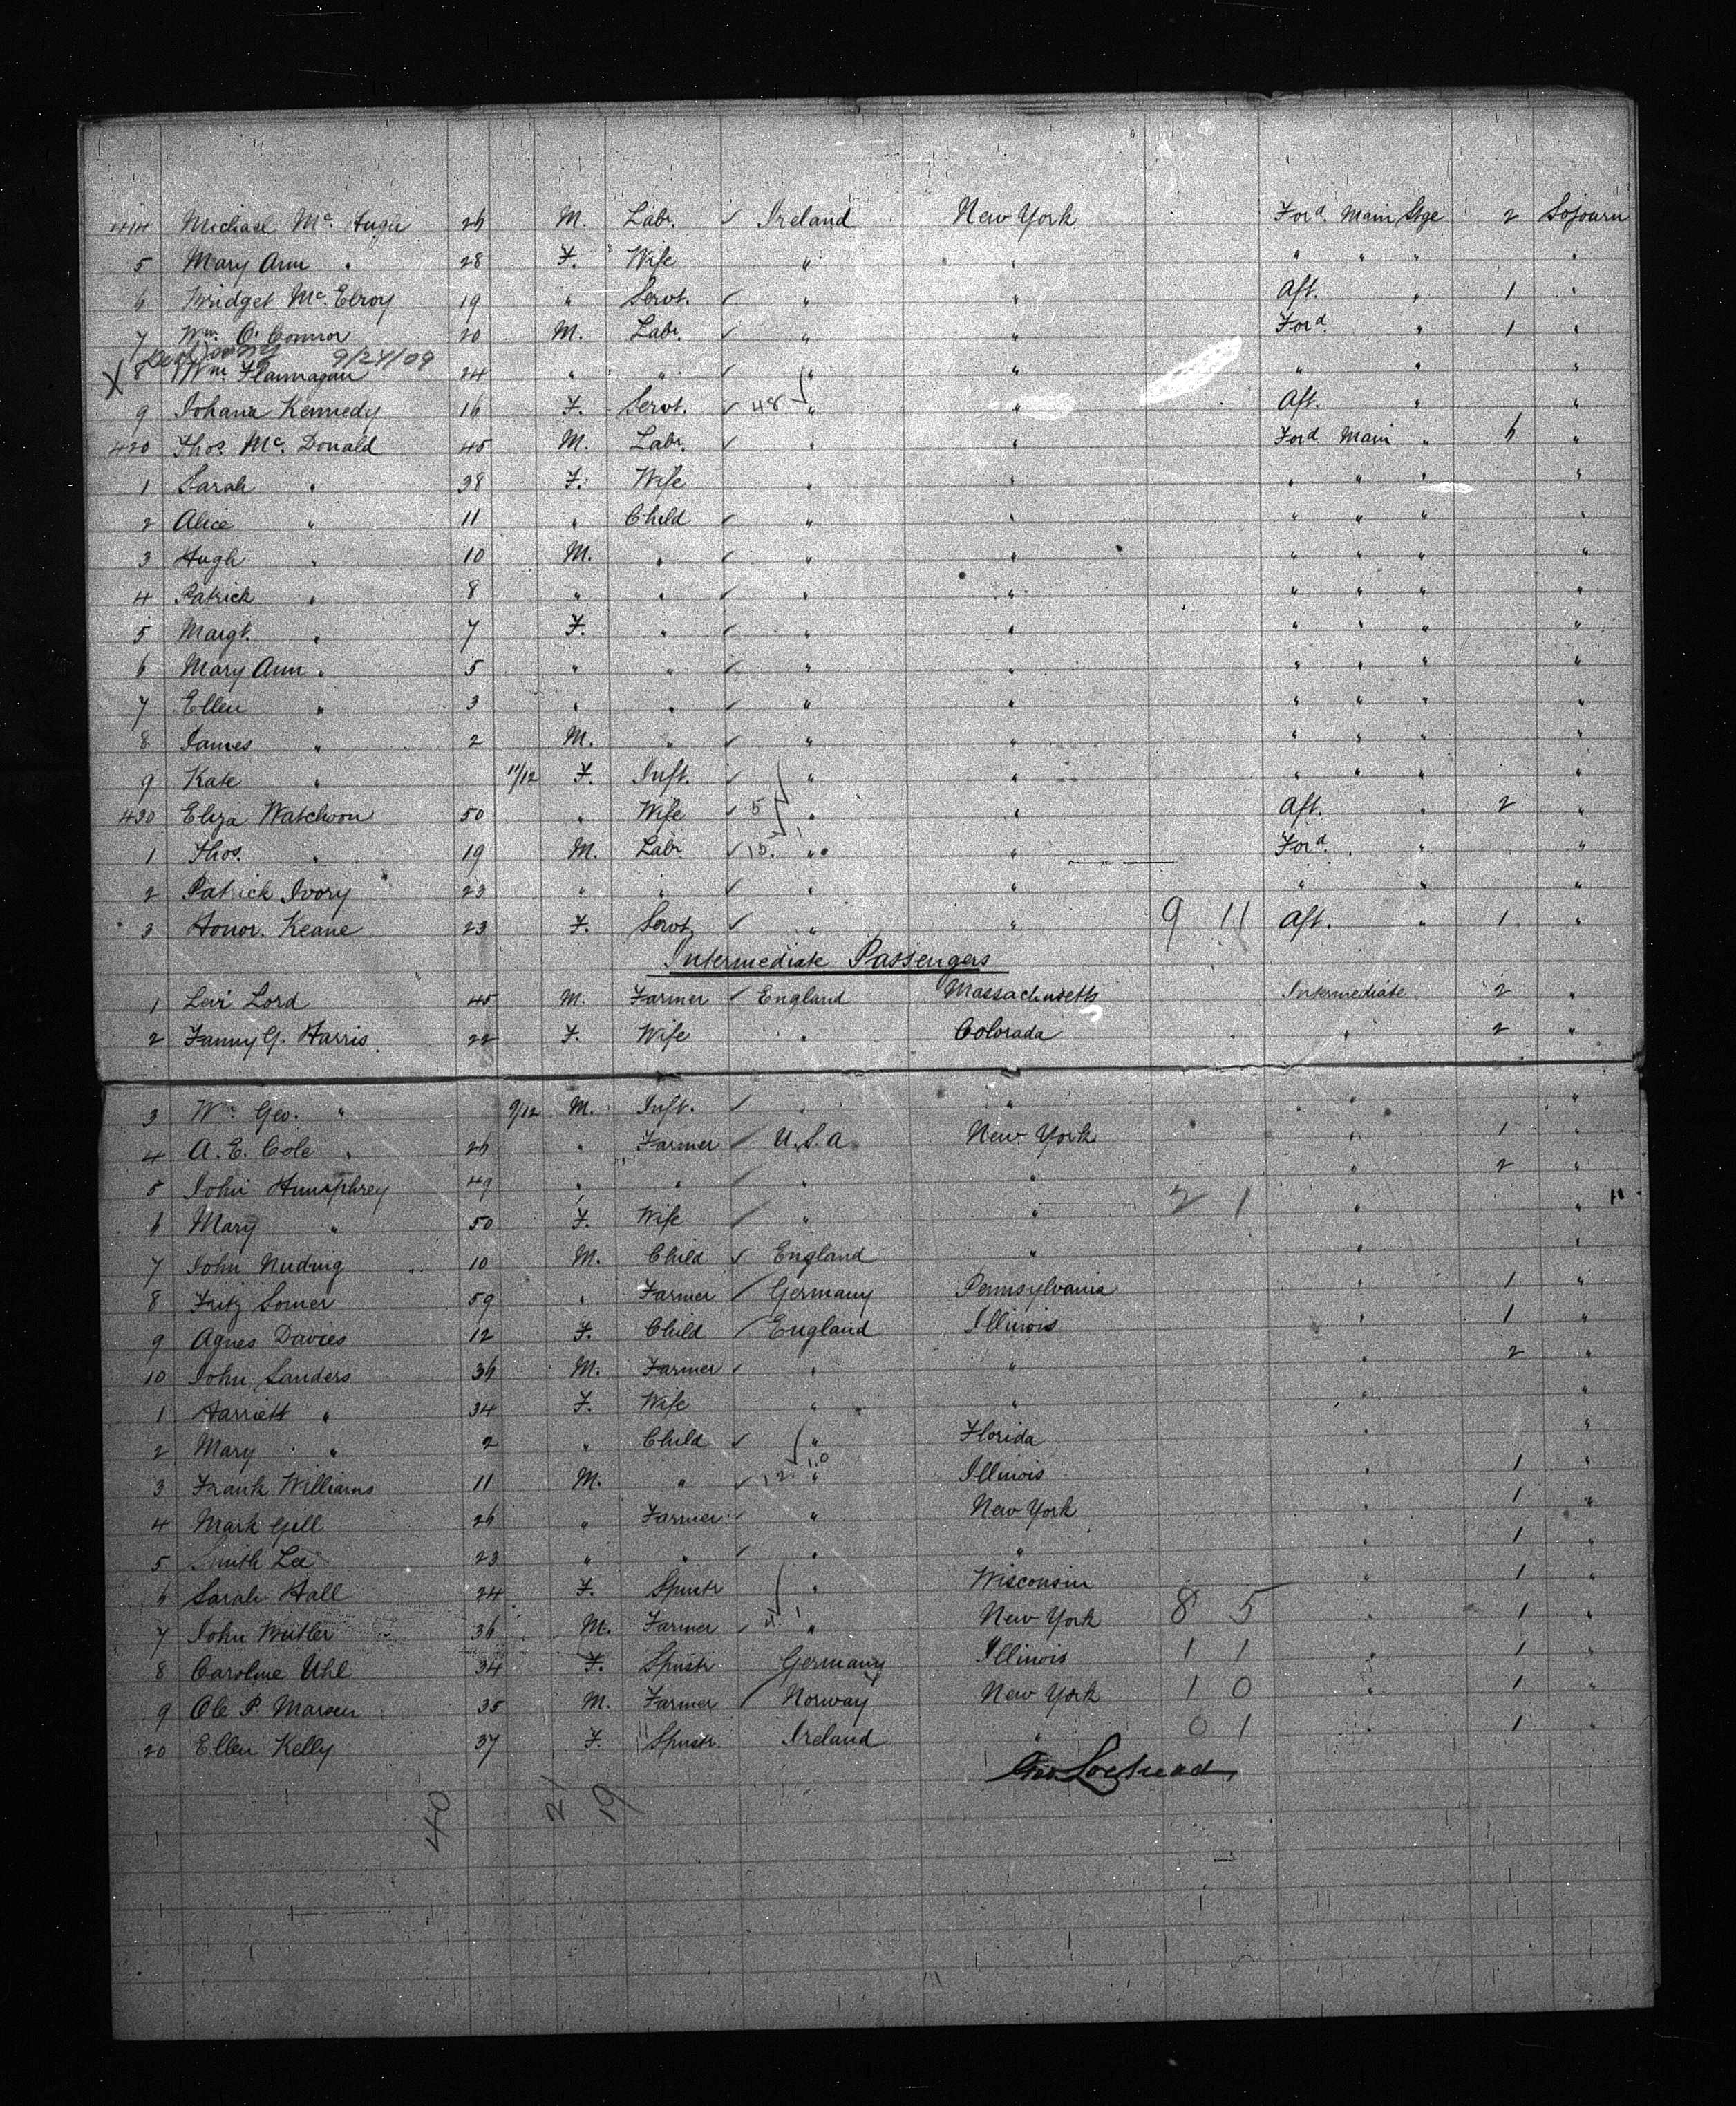 414 Michael Mc Hugh 26 M. Labr. ✓ Ireland New York Ford Main Stge 2 Sojourn
5 Mary Ann " 28 F. Wife " " " " " "
6 Bridget Mc Elroy 19 " Servt. ✓ " " Aft. " 1 "
7 Wm O'Connor 20 M. Labr. ✓ " " Ford " 1 "
9/24/09
X 8 Wm Flannagan 24 " " ✓ " " " " "
9 Johana Kennedy 16 F. Servt. ✓ 48 " " Aft. " "
420 Thos. Mc Donald 45 M. Labr. ✓ " " Ford Main " 6 "
1 Sarah " 38 F. Wife " " " " " "
2 Alice " 11 " Child ✓ " " " " " "
3 Hugh " 10 M. " ✓ " " " " " "
4 Patrick " 8 " " ✓ " " " " " "
5 Margt. " 7 F. " ✓ " " " " " "
6 Mary Ann " 5 " " ✓ " " " " " "
7 Ellen " 3 " " ✓ " " " " " "
8 James " 2 M. " ✓ " " " " " "
9 Kate " 11/12 F. Inft. ✓ " " " " " "
430 Eliza Watchorn 50 " Wife ✓ 5 " " Aft. " 2 "
1 Thos. " 19 M. Labr. ✓ 15 " " Ford. " "
2 Patrick Ivory 23 " " ✓ " " " " "
3 Honor. Keane 23 F. Servt. ✓ " " 9 11 Aft. " 1 "
Intermediate Passengers
1 Levi Lord 45 M. Farmer ✓ England Massachusetts Intermediate 2 "
2 Fanny G. Harris 22 F. Wife " Colorada " 2 "
3 Wm Geo. " 9/12 M. Inft. ✓ " " " "
4 A. E. Cole " 26 " Farmer ✓ U.S.A New York " 1 "
5 John Humphrey 49 " " ✓ " " " 2 "
6 Mary " 50 F. Wife ✓ " " 2 1 " "
7 John Nuding 10 M. Child ✓ England " " "
8 Fritz Somer 59 " Farmer ✓ Germany Pennsylvania " 1 "
9 Agnes Davies 12 F. Child ✓ England Illinois " 1 "
10 John Sanders 36 M. Farmer ✓ " " " 2 "
1 Harriett " 34 F. Wife " " " "
2 Mary " 2 " Child ✓ " Florida " "
3 Frank Williams 11 M. " ✓ 12 10 " Illinois " 1 "
4 Mark Gill 26 " Farmer ✓ " New York " 1 "
5 Smith Lee 23 " " ✓ " " " 1 "
6 Sarah Hall 24 F. Spnstr " Wisconsin " 1 "
7 John Butler 36 M. Farmer ✓ " New York 8 5 " 1 "
8 Caroline Uhl 34 F. Spnstr Germany Illinois 1 1 " 1 "
9 Ole P. Marsen 35 M. Farmer ✓ Norway New York 1 0 " 1 "
20 Ellen Kelly 37 F. Spnstr. Ireland " 0 1 " 1 "
40 21 19